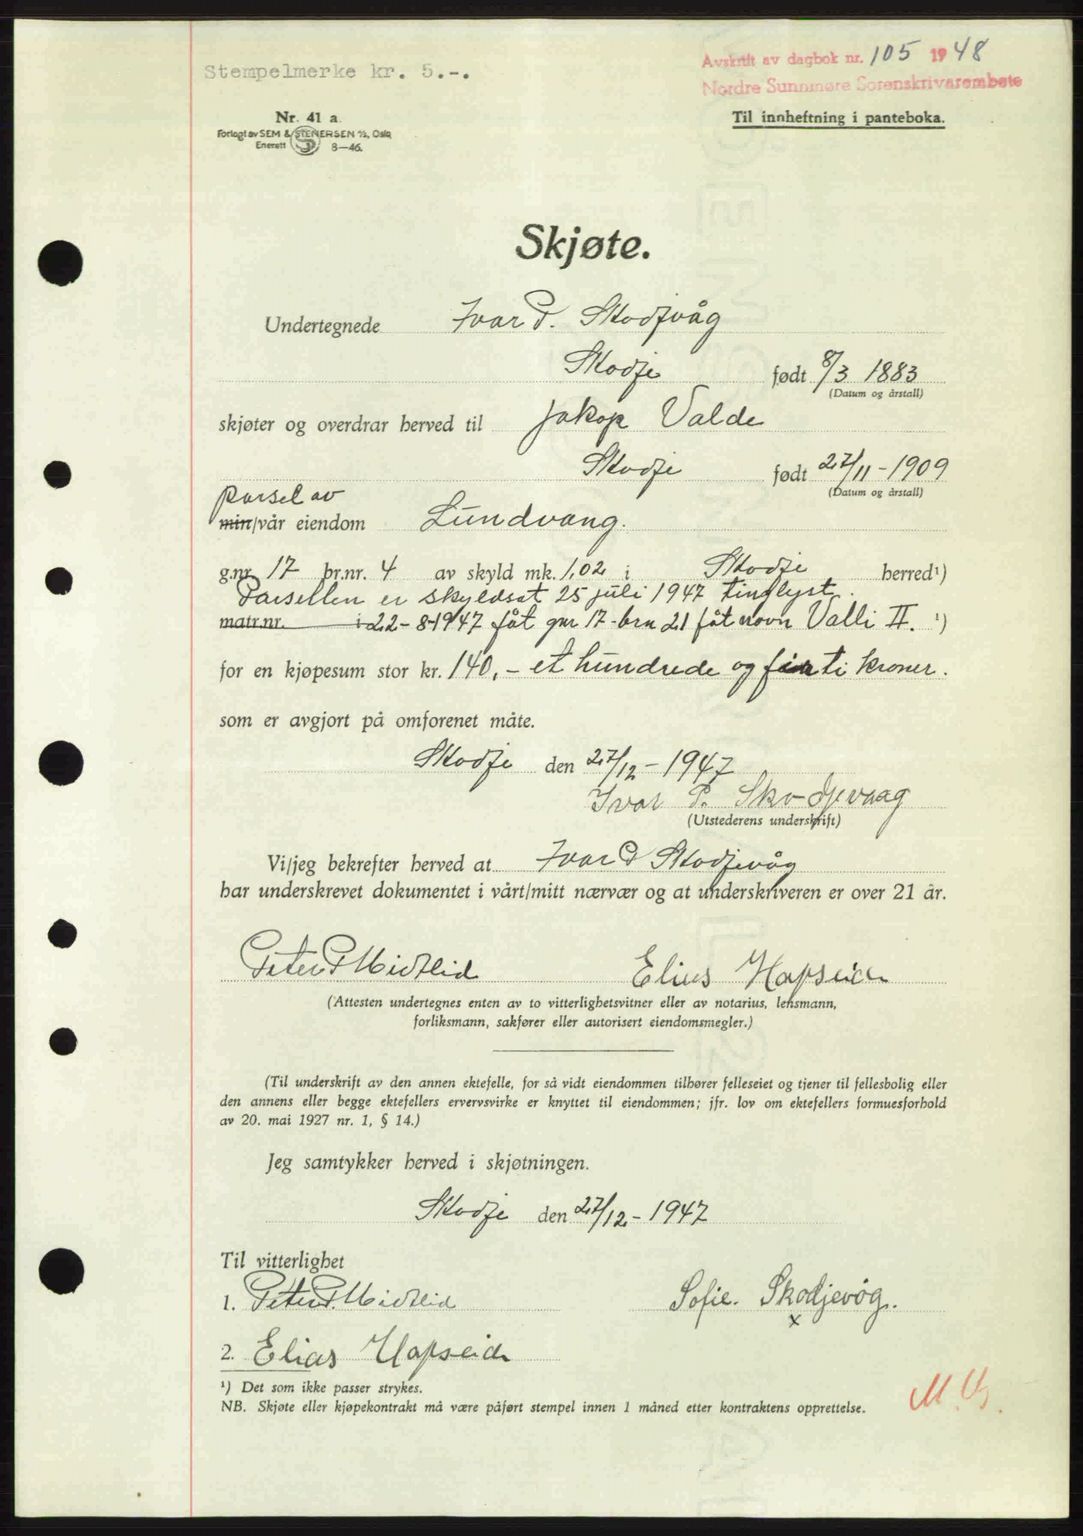 Stempelmerke kr. 5.-.
Avskrift av dagbok nr. 105 1948
Nordre Sunnmøre Sorenskrivarembete
Nr. 41 a
Til innheftning i panteboka.
Forlagt av SEM & STENERSEN A/S, Oslo
Enerett 8-46.
Skjøte.
Undertegnede Ivar P. Skodjvåg
Skodje født 8/3 1883
(Datum og årstall)
skjøter og overdrar herved til Jakop Valde
Skodje født 27/11-1909
(Datum og årstall)
parsel av
min/vår eiendom Lundvang.
g.nr. 17 br.nr. 4 av skyld mk. 1,02 i Skodje herred¹)
Parsellen er skyldsat 25 juli 1947 tinglyst
matr.nr. i 22-8-1947 fåt gnr 17-brn 21 fåt navn Valli II. ¹)
for en kjøpesum stor kr. 140,- et hundrede og firti kroner.
som er avgjort på omforenet måte.
Skodje den 27/12-1947
Ivar P. Skodjevaag
(Utstederens underskrift)
Vi/jeg bekrefter herved at Ivar P Skodjevåg
har underskrevet dokumentet i vårt/mitt nærvær og at underskriveren er over 21 år.
Peter P Midtlid Elias Hapseid
(Attesten undertegnes enten av to vitterlighetsvitner eller av notarius, lensmann,
forliksmann, sakfører eller autorisert eiendomsmegler.)
(Til underskrift av den annen ektefelle, for så vidt eiendommen tilhører felleseiet og tjener til fellesbolig eller
den annens eller begge ektefellers ervervsvirke er knyttet til eiendommen; jfr. lov om ektefellers formuesforhold
av 20. mai 1927 nr. 1, § 14.)
Jeg samtykker herved i skjøtningen.
Skodje den 27/12-1947
Til vitterlighet
1. Peter P. Midtlid Sofie Skodjevåg.
x
2. Elias Hapseid
¹) Det som ikke passer strykes.
NB. Skjøte eller kjøpekontrakt må være påført stempel innen 1 måned etter kontraktens opprettelse.